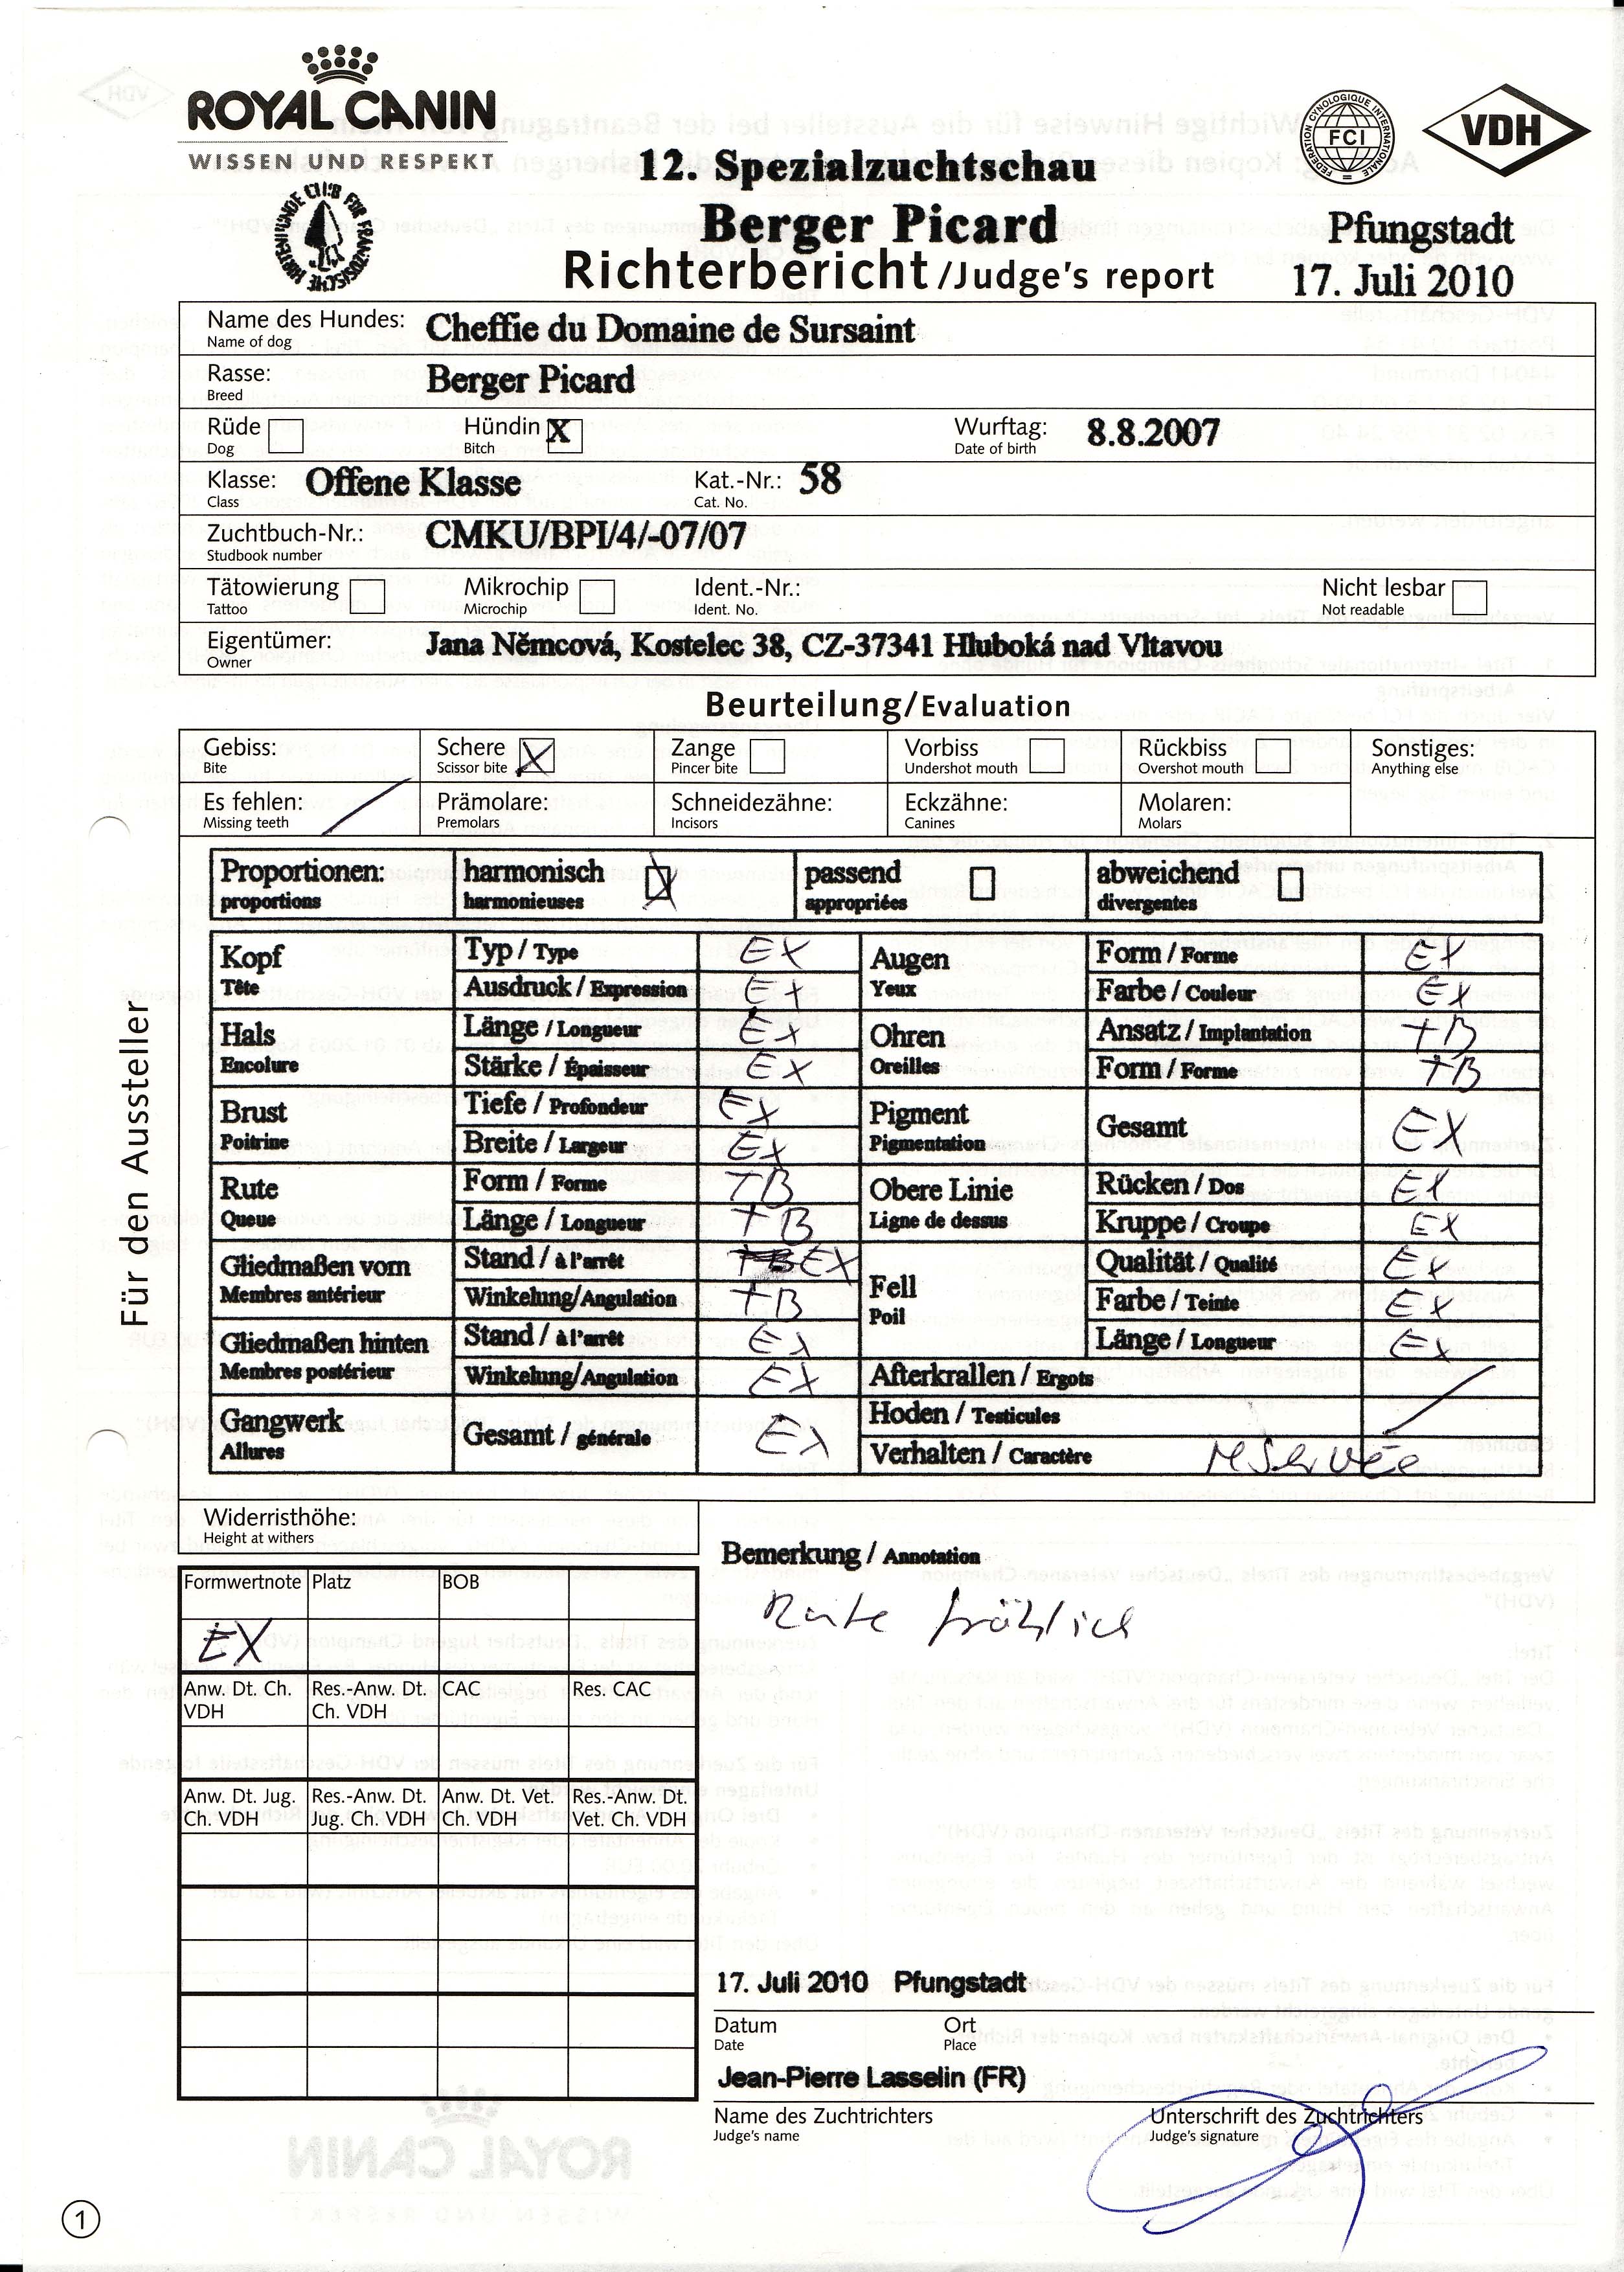 ROYAL CANIN
WISSEN UND RESPEKT
CLUB FÜR FRANZÖSISCHE HIRTENHUNDE
FEDERATION CYNOLOGIQUE INTERNATIONALE
FCI
VDH
12. Spezialzuchtschau
Berger Picard
Pfungstadt
Richterbericht/Judge's report
17. Juli 2010
Name des Hundes: Cheffie du Domaine de Sursaint
Name of dog
Rasse: Berger Picard
Breed
Rüde Hündin X Wurftag: 8.8.2007
Dog Bitch Date of birth
Klasse: Offene Klasse Kat.-Nr.: 58
Class Cat. No.
Zuchtbuch-Nr.: CMKU/BPI/4/-07/07
Studbook number
Tätowierung Mikrochip Ident.-Nr.: Nicht lesbar
Tattoo Microchip Ident. No. Not readable
Eigentümer: Jana Němcová, Kostelec 38, CZ-37341 Hluboká nad Vltavou
Owner
Beurteilung/Evaluation
Gebiss: Schere X Zange Vorbiss Rückbiss Sonstiges:
Bite Scissor bite Pincer bite Undershot mouth Overshot mouth Anything else
Es fehlen: / Prämolare: Schneidezähne: Eckzähne: Molaren:
Missing teeth Premolars Incisors Canines Molars
Proportionen: harmonisch X passend abweichend
proportions harmonieuses appropriées divergentes
Kopf Typ / Type EX Augen Form / Forme EX
Tête Ausdruck / Expression EX Yeux Farbe / Couleur EX
Hals Länge / Longueur EX Ohren Ansatz / Implantation TB
Encolure Stärke / Épaisseur EX Oreilles Form / Forme TB
Brust Tiefe / Profondeur EX Pigment Gesamt EX
Poitrine Breite / Largeur EX Pigmentation
Rute Form / Forme TB Obere Linie Rücken / Dos EX
Queue Länge / Longueur TB Ligne de dessus Kruppe / Croupe EX
Gliedmaßen vorn Stand / à l'arrêt TB EX Fell Qualität / Qualité EX
Membres antérieur Winkelung/Angulation TB Poil Farbe / Teinte EX
Gliedmaßen hinten Stand / à l'arrêt EX Länge / Longueur EX
Membres postérieur Winkelung/Angulation EX Afterkrallen / Ergots /
Gangwerk Gesamt / générale EX Hoden / Testicules
Allures Verhalten / Caractère réservée
Für den Aussteller
Widerristhöhe:
Height at withers
Bemerkung / Annotation
Rute fröhlich
Formwertnote Platz BOB
EX
Anw. Dt. Ch. VDH Res.-Anw. Dt. Ch. VDH CAC Res. CAC
Anw. Dt. Jug. Ch. VDH Res.-Anw. Dt. Jug. Ch. VDH Anw. Dt. Vet. Ch. VDH Res.-Anw. Dt. Vet. Ch. VDH
17. Juli 2010 Pfungstadt
Datum Ort
Date Place
Jean-Pierre Lasselin (FR)
Name des Zuchtrichters Unterschrift des Zuchtrichters
Judge's name Judge's signature
1